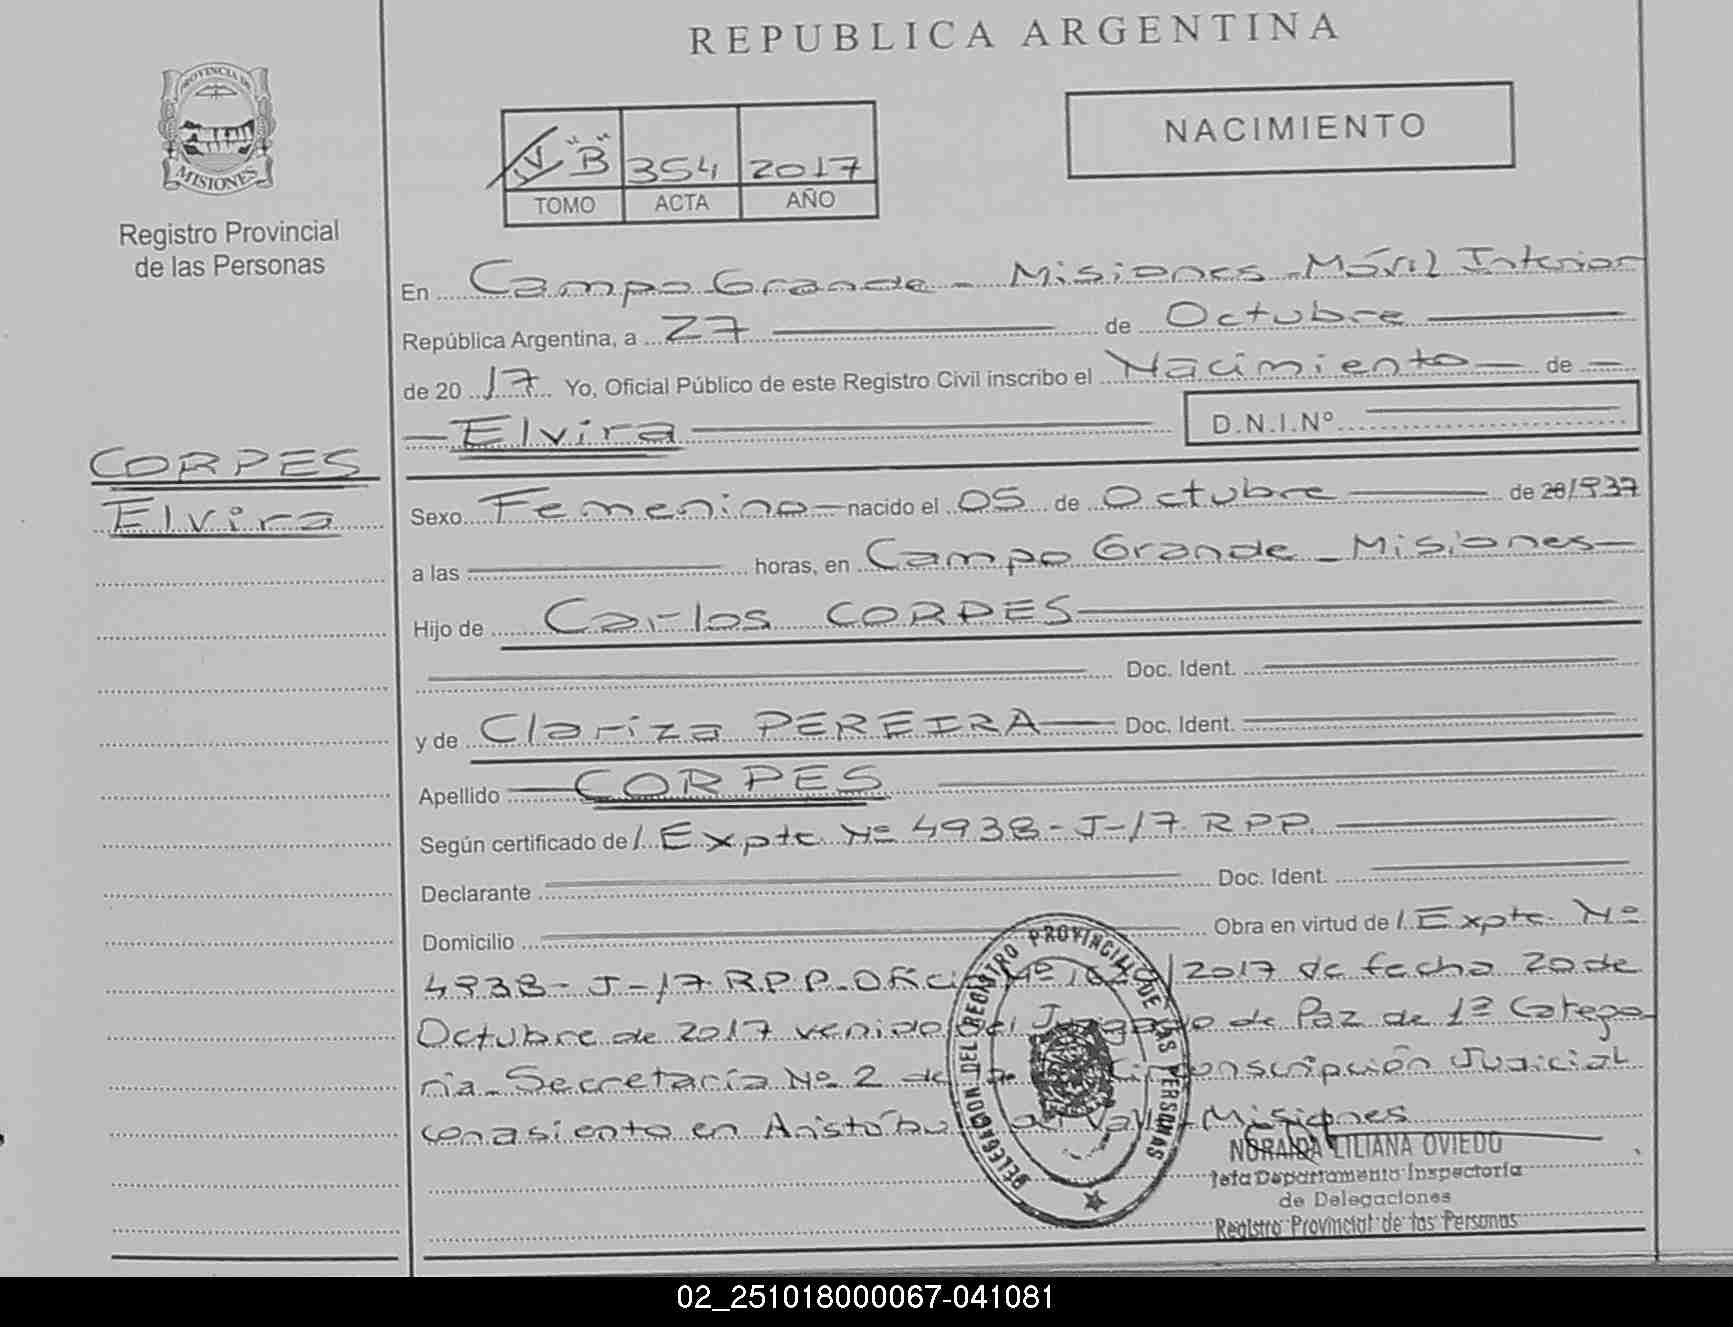 REPUBLICA ARGENTINA
PROVINCIA DE
MISIONES
Registro Provincial
de las Personas
"B" 354 2017
TOMO ACTA AÑO
NACIMIENTO
En Campo Grande - Misiones - Móvil Interior
República Argentina, a 27 de Octubre
de 20 17 Yo, Oficial Público de este Registro Civil inscribo el Nacimiento de
Elvira D.N.I.Nº
CORPES
Elvira
Sexo Femenino nacido el 05 de Octubre de 20/1937
a las horas, en Campo Grande - Misiones
Hijo de Carlos CORPES
Doc. Ident.
y de Clariza PEREIRA Doc. Ident.
Apellido CORPES
Según certificado de / Expte. Nº 4938-J-17 RPP.
Declarante Doc. Ident.
Domicilio Obra en virtud de / Expte. Nº
4938-J-17 R.P.P. Oficio Nº /2017 de fecha 20 de
Octubre de 2017 venido del Juzgado de Paz de 1ª Catego-
ría - Secretaría Nº 2 de Circunscripción Judicial
con asiento en Aristóbulo del Valle - Misiones
DELEGACION DEL REGISTRO PROVINCIAL DE LAS PERSONAS
NORAIDA LILIANA OVIEDO
Jefa Departamento Inspectoría
de Delegaciones
Registro Provincial de las Personas
02_251018000067-041081